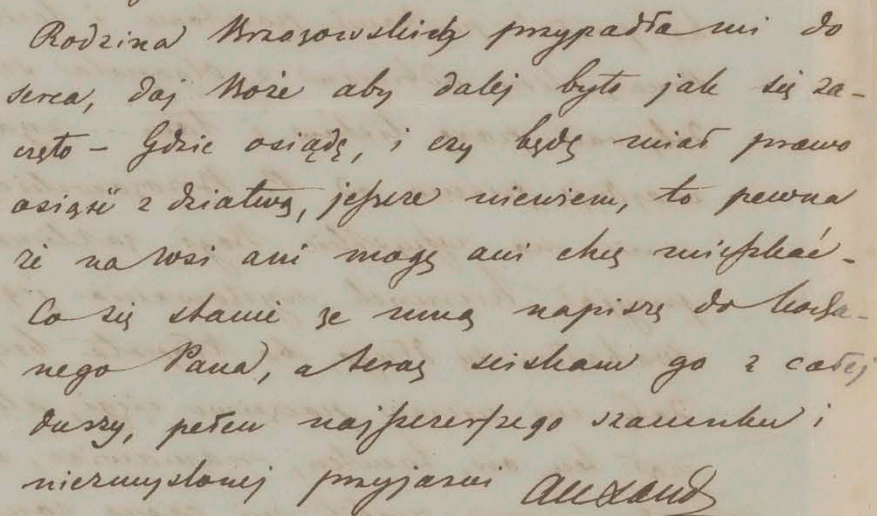 Rodzina Brzozowskich przypadła mi do
serca, daj Boże aby dalej było jak się za-
częło – Gdzie osiądę, i czy będę miał prawo
osiąść z dziatwą, jeszcze niewiem, to pewna
że na wsi ani mogę ani chcę mieszkać –
Co się stanie ze mną napiszę do kocha-
nego Pana, a teraz sciskam go z całej
duszy, pełen najszczerszego szacunku i
niezmyslonej przyjazni